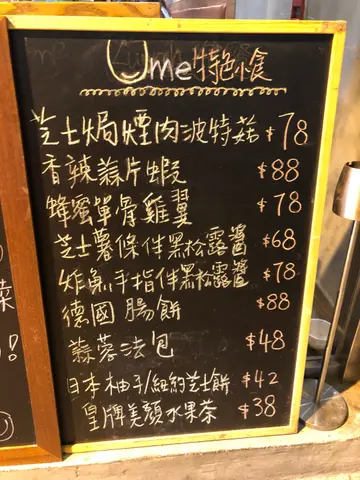 Ume特色小食
芝士焗煙肉波特菇 $78
香辣蒜片蝦 $88
蜂蜜單骨雞翼 $78
芝士薯條伴黑松露醬 $68
炸魚手指伴黑松露醬 $78
德國腸餅 $88
蒜蓉法包 $48
日本柚子/紐約芝士餅 $42
皇牌美顏水果茶 $38
菜
!